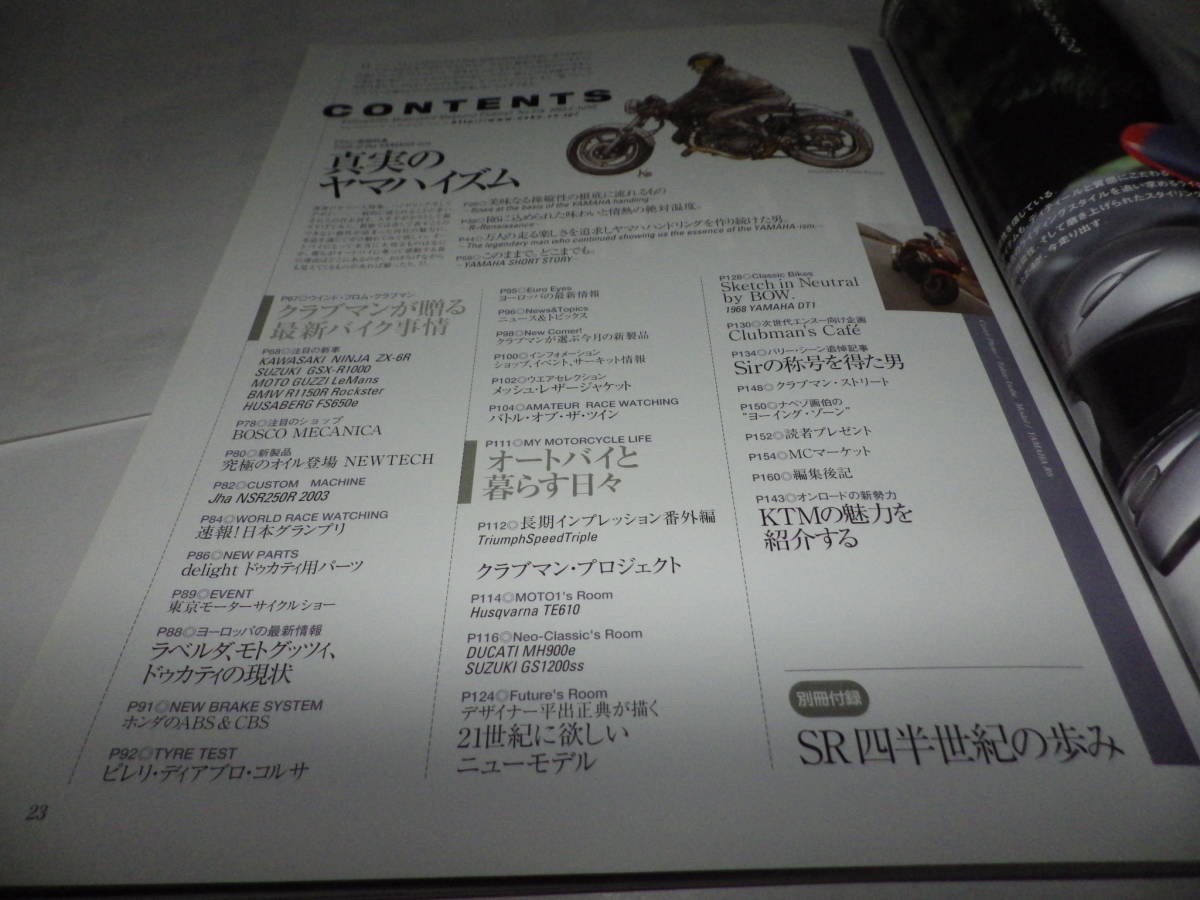 CONTENTS
真実の
ヤマハイズム
美味なる操縦性の根底に流れるもの
-Flows at the basis of the YAMAHA handling-
に込められた味わいと情熱の絶対温度。
-R-Renaissance-
P44◎万人の走る楽しさを追求しヤマハハンドリングを作り続けた男。
-The legendary man who continued showing us the essence of the YAMAHA-ism-
このままで、どこまでも。
-YAMAHA SHORT STORY-
P67◎ウインド・フロム・クラブマン
クラブマンが贈る
最新バイク事情
P68◎注目の新車
KAWASAKI NINJA ZX-6R
SUZUKI GSX-R1000
MOTO GUZZI LeMans
BMW R1150R Rockster
HUSABERG FS650e
P78◎注目のショップ
BOSCO MECANICA
P80◎新製品
究極のオイル登場 NEWTECH
P82◎CUSTOM MACHINE
Jha NSR250R 2003
P84◎WORLD RACE WATCHING
速報!日本グランプリ
P86◎NEW PARTS
delight ドゥカティ用パーツ
P89◎EVENT
東京モーターサイクルショー
P88◎ヨーロッパの最新情報
ラベルダ、モトグッツィ、
ドゥカティの現状
P91◎NEW BRAKE SYSTEM
ホンダのABS&CBS
P92◎TYRE TEST
ピレリ・ディアブロ・コルサ
P95◎Euro Eyes
ヨーロッパの最新情報
P96◎News&Topics
ニュース&トピックス
P98◎New Comer!
クラブマンが選ぶ今月の新製品
P100◎インフォメーション
ショップ、イベント、サーキット情報
P102◎ウエアセレクション
メッシュ・レザージャケット
P104◎AMATEUR RACE WATCHING
バトル・オブ・ザ・ツイン
P111◎MY MOTORCYCLE LIFE
オートバイと
暮らす日々
P112◎長期インプレッション番外編
TriumphSpeedTriple
クラブマン・プロジェクト
P114◎MOTO1's Room
Husqvarna TE610
P116◎Neo-Classic's Room
DUCATI MH900e
SUZUKI GS1200ss
P124◎Future's Room
デザイナー平出正典が描く
21世紀に欲しい
ニューモデル
P128◎Classic Bikes
Sketch in Neutral
by BOW.
1968 YAMAHA DT1
P130◎次世代エンスー向け企画
Clubman's Café
P134◎バリー・シーン追悼記事
Sirの称号を得た男
P148◎クラブマン・ストリート
P150◎ナベゾ画伯の
"ヨーイング・ゾーン"
P152◎読者プレゼント
P154◎MCマーケット
P160◎編集後記
P143◎オンロードの新勢力
KTMの魅力を
紹介する
別冊付録
SR四半世紀の歩み
23